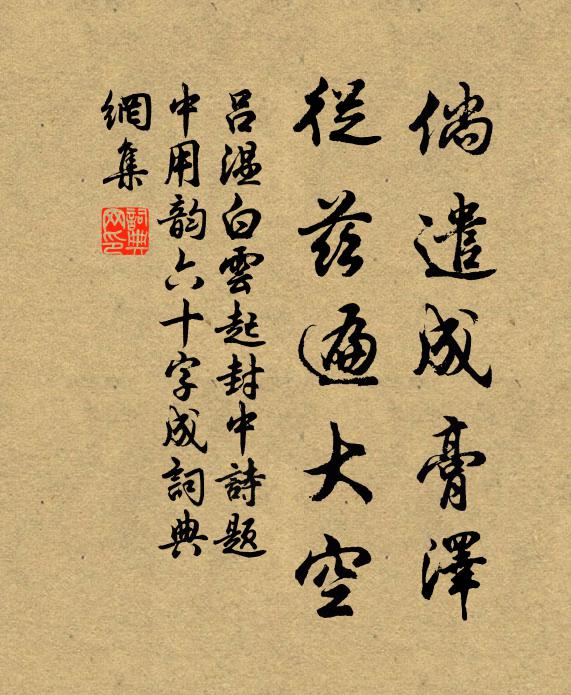 倘遣成膏澤
從茲遍大空
吕温白雲起封中詩题
中用韵六十字成詞典
網集
詞典網印